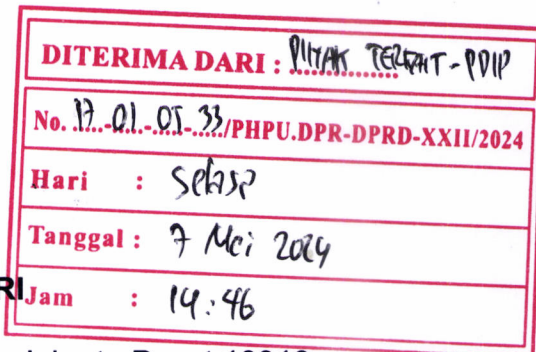 DITERIMA DARI : PIHAK TERKAIT - PDIP
No. 17-01-05-33/PHPU.DPR-DPRD-XXII/2024
Hari : Selasa
Tanggal : 7 Mei 2024
RI
Jam : 14:46